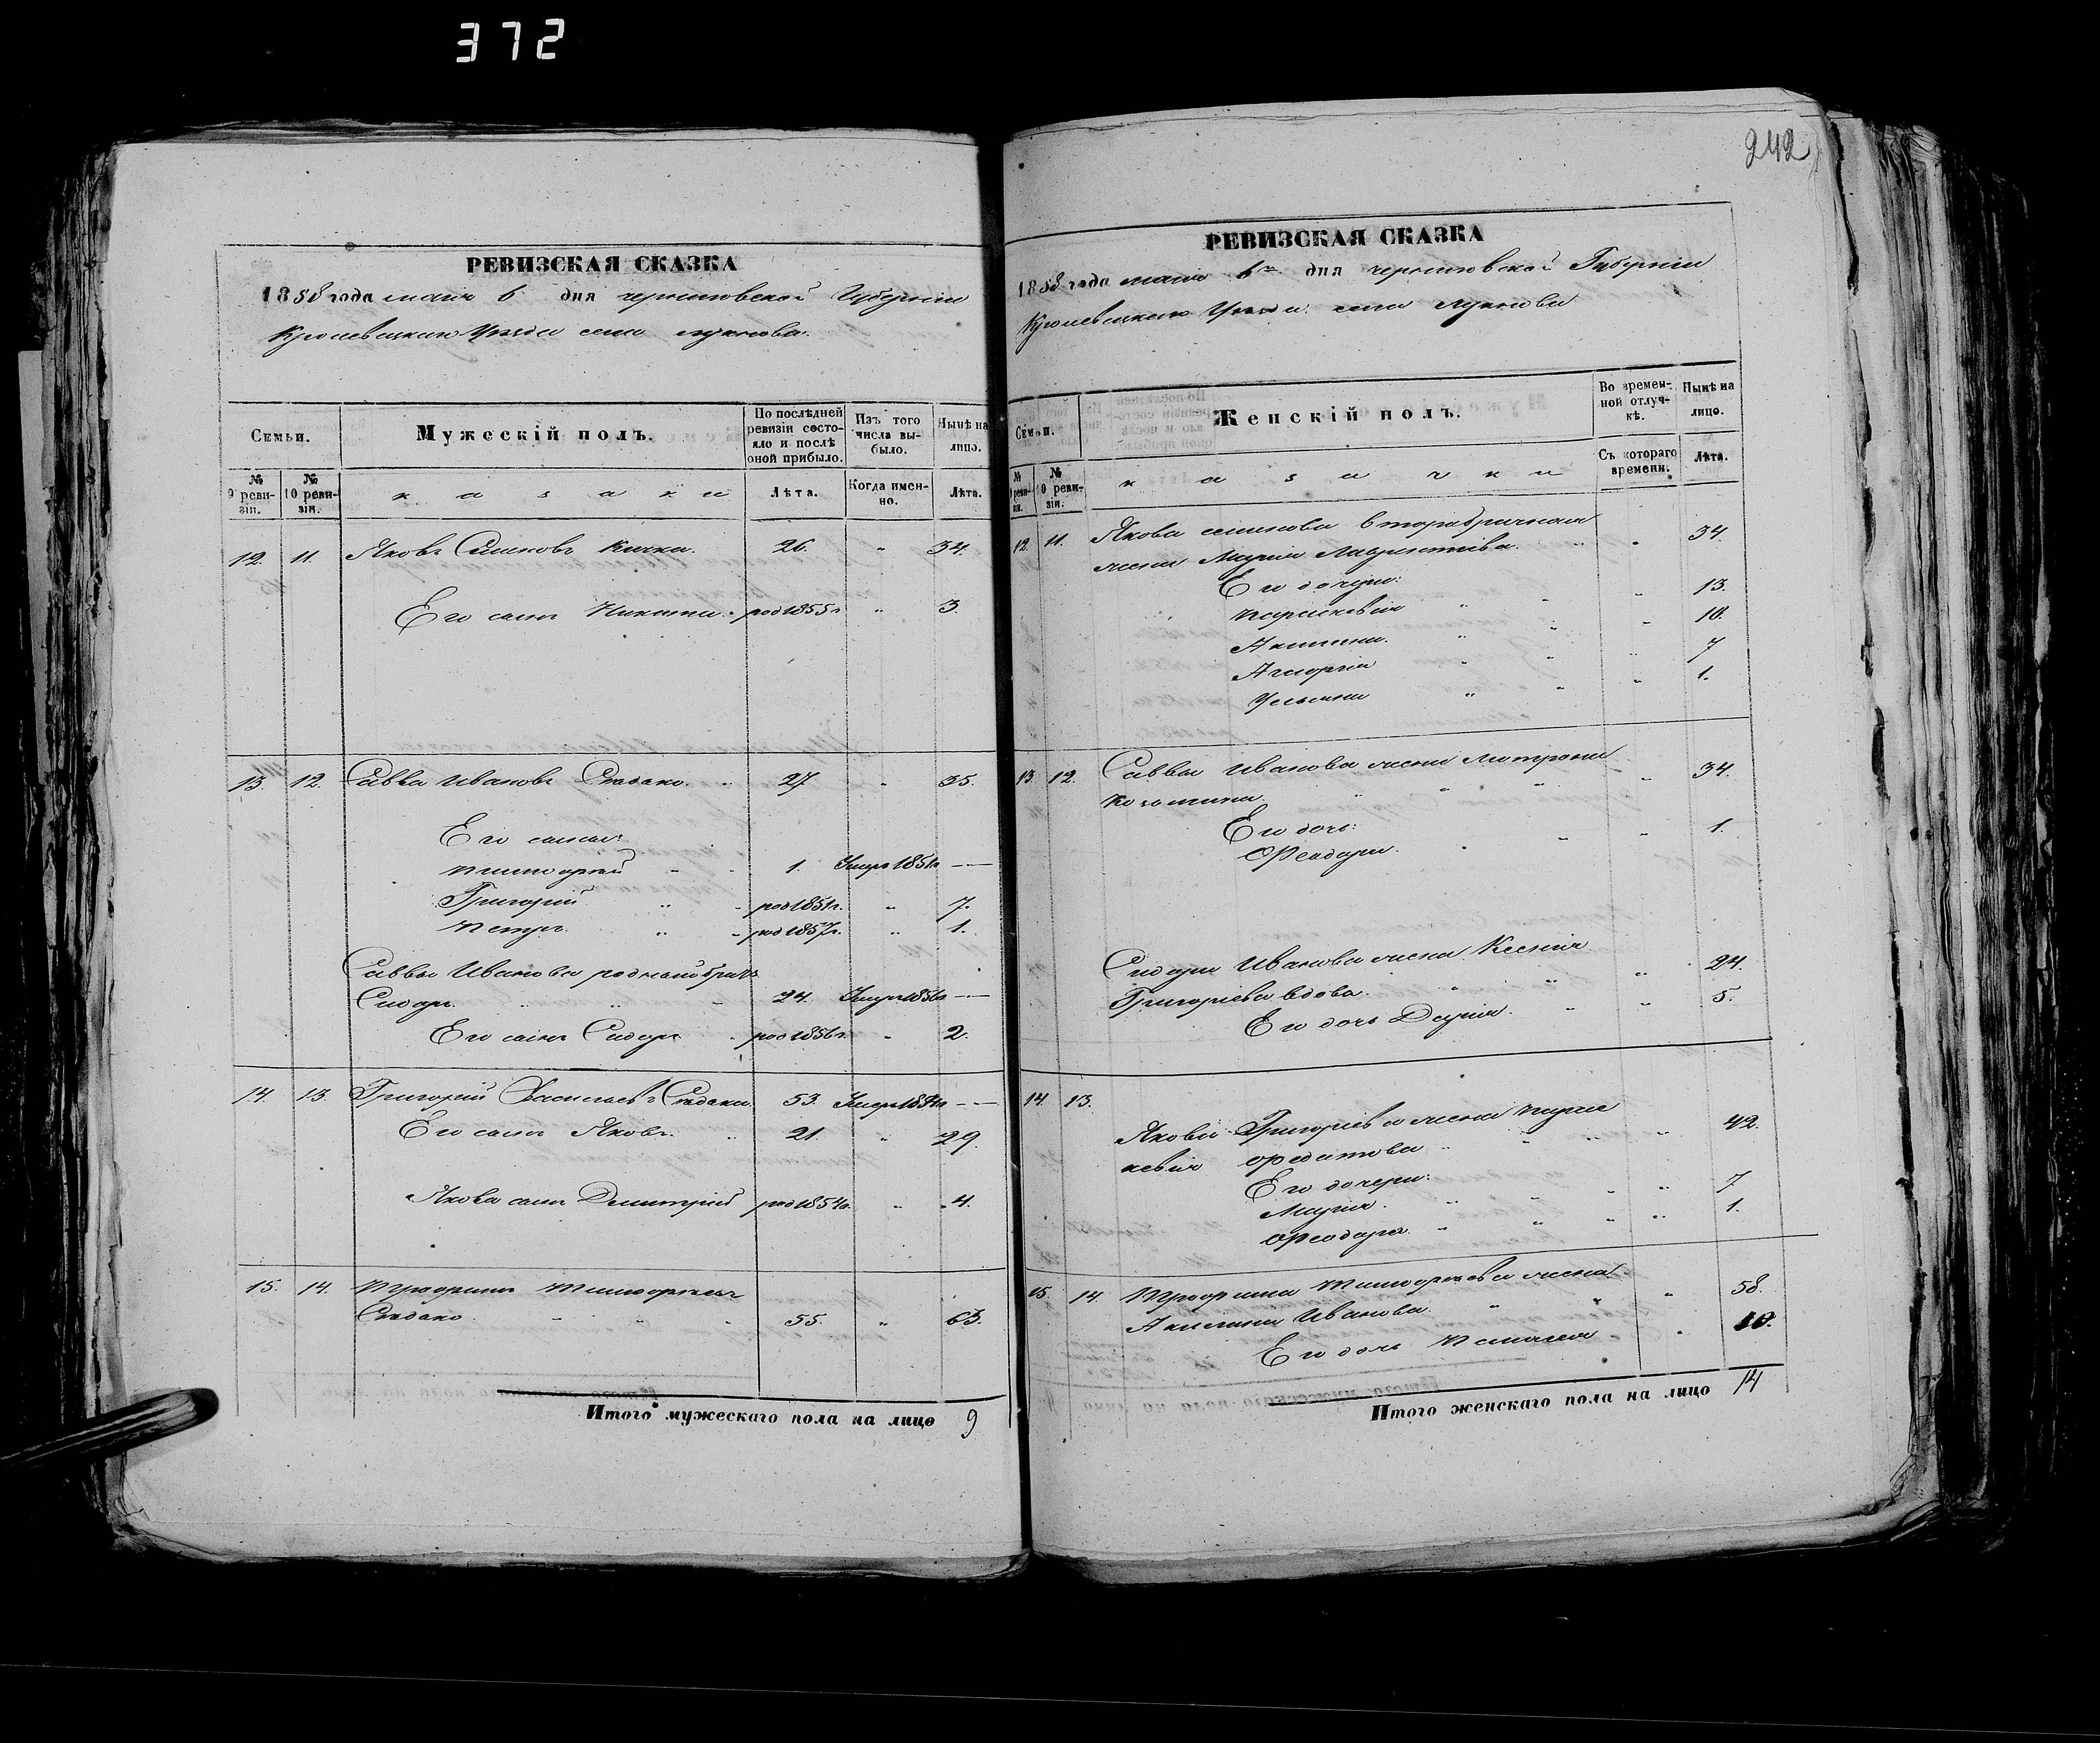 372
242
РЕВИЗСКАЯ СКАЗКА
1858 года мая 6 дня черниговской Губернии
Кролевецкаго Уезда села
Семьи.
Мужескій полъ.
По послѣдней ревизіи состояло и послѣ оной прибыло.
Изъ того числа выбыло.
Нынѣ на лицо.
№ 9 ревизіи.
№ 10 ревизіи.
казаки
Лѣта.
Когда именно.
Лѣта.
12. 11. Яковъ Семеновъ Кичка. 26. " 34.
Его сынъ Никита. род 1855 г. " 3.
13. 12. Савва Ивановъ 27 " 35.
Его сыновья:
Тимофей 1. Умеръ 1851 г. —
Григорій " род 1851 г. " 7.
Петръ " род 1857 г. " 1.
Саввы Иванова родный братъ
Сидоръ 24. Умеръ 1856 г. —
Его сынъ Сидоръ род 1856 г. " 2.
14. 13. Григорий Васильевъ 53. Умеръ —
Его сынъ Яковъ. " 21. " 29.
Якова сынъ Дмитрій род 1854 г. " 4.
15. 14. Трофимъ Тимофеевъ
55. " 63.
Итого мужескаго пола на лицо 9
РЕВИЗСКАЯ СКАЗКА
1858 года мая 6го дня черниговской Губернии
Кролевецкаго Уезда села
Семьи.
Женскій полъ.
Во временной отлучкѣ.
Нынѣ на лицо.
№ 9 ревизіи.
№ 10 ревизіи.
казачки
Съ котораго времени.
Лѣта.
12. 11. Якова семенова второбрачная
жена Мария Лаврентиева. " " 34.
Его дочери:
Параскевия " " 13.
Акилина. " " 10.
" " 7
Ульяна " " 1.
13. 12. Саввы Иванова жена Матрона
Козьмина. " " 34.
Его дочь:
Феодора. " 1.
Сидора Иванова жена Ксения
Григориева вдова. " " 24.
Его дочь Дария. " 5.
14. 13.
Якова Григориева жена Парас
кевия " " 42.
Его дочери:
Мария. " " 7
Феодора. " " 1.
15. 14 Трофима Тимофеева жена
Акилина Иванова. " " 58.
Его дочь " 10.
Итого женскаго пола на лицо 14